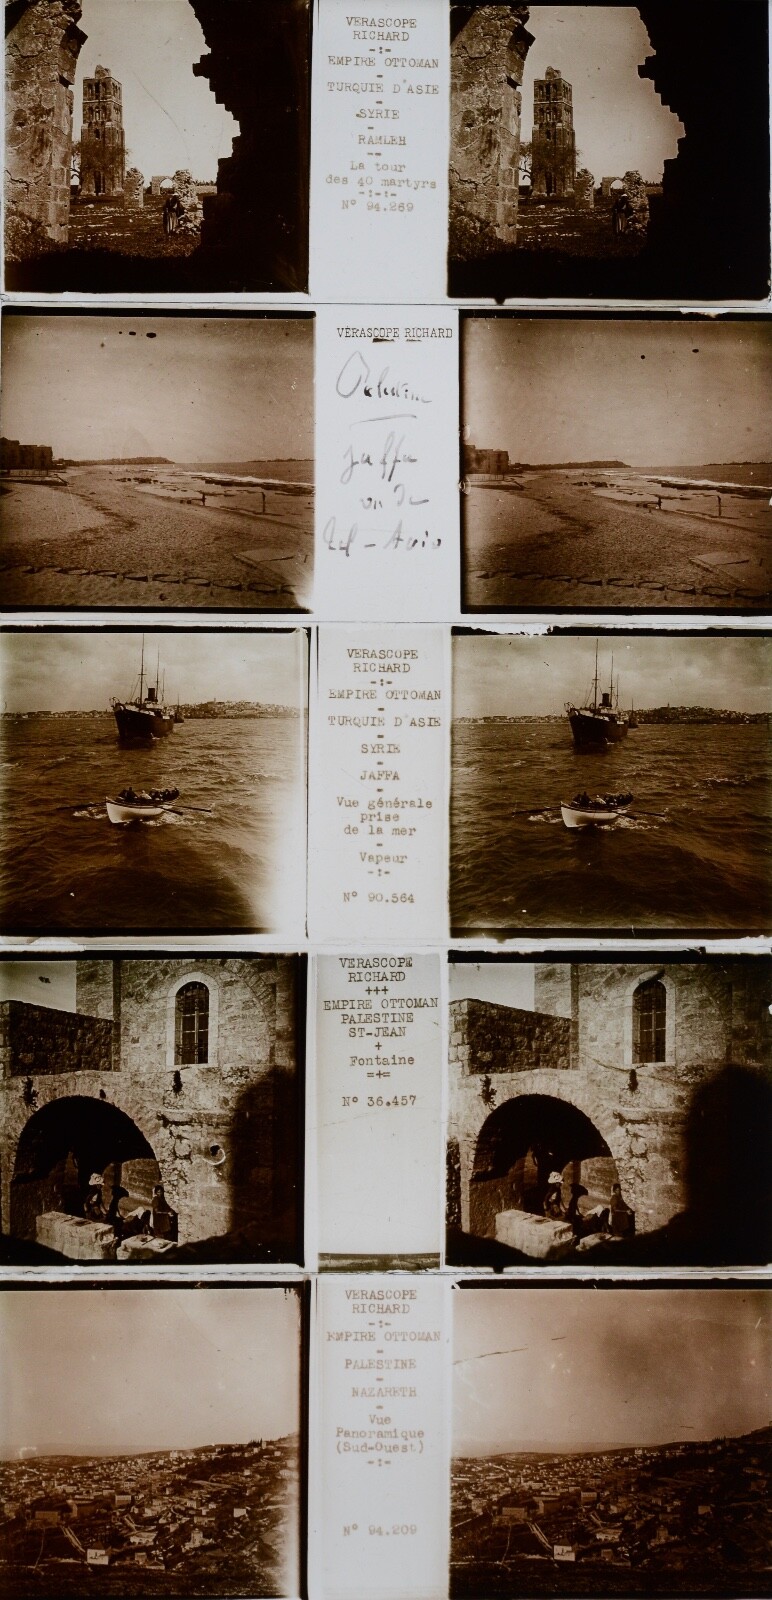 VERASCOPE
RICHARD
-:-
EMPIRE OTTOMAN
-
TURQUIE D'ASIE
-
SYRIE
-
RAMLEH
--
La tour
des 40 martyrs
-:-:-
N° 94.269
VÉRASCOPE RICHARD
Palestine
Jaffa
vu de
Tel-Aviv
VERASCOPE
RICHARD
-:-
EMPIRE OTTOMAN
-
TURQUIE D'ASIE
-
SYRIE
-
JAFFA
-
Vue générale
prise
de la mer
-
Vapeur
-:-
N° 90.564
VERASCOPE
RICHARD
+++
EMPIRE OTTOMAN
PALESTINE
ST-JEAN
+
Fontaine
=+=
N° 36.457
VERASCOPE
RICHARD
-:-
EMPIRE OTTOMAN
-
PALESTINE
-
NAZARETH
-
Vue
Panoramique
(Sud-Ouest)
-:-
N° 94.209